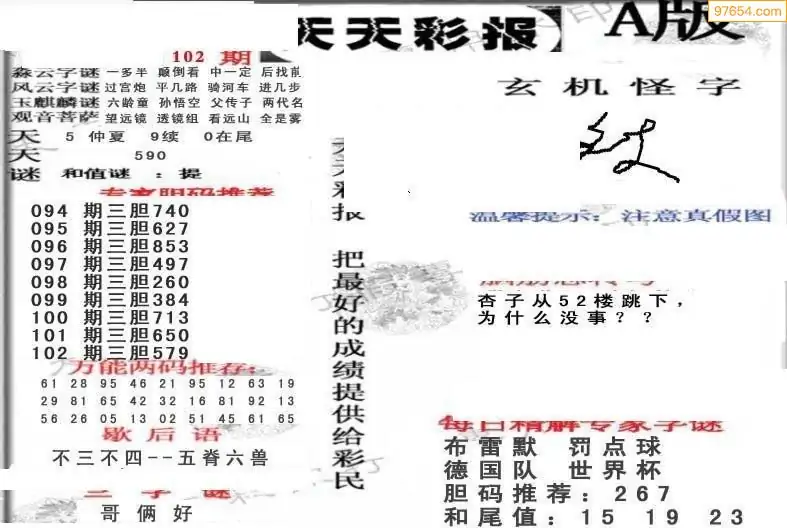 97654.com
天天彩报】
A版
102 期
森云字谜 一多半 颠倒看 中一定 后找前
风云字谜 过宫炮 平几路 骑河车 进几步
玉麒麟谜 六龄童 孙悟空 父传子 两代名
观音菩萨 望远镜 透镜组 看远山 全是雾
天 5 仲夏 9续 0在尾
天 590
谜 和值谜 :提
专家胆码推荐
094 期三胆740
095 期三胆627
096 期三胆853
097 期三胆497
098 期三胆260
099 期三胆384
100 期三胆713
101 期三胆650
102 期三胆579
万能两码推荐:
61 28 95 46 21 95 12 63 19
29 81 65 42 32 16 81 92 13
56 26 05 13 02 51 45 61 65
歇后语
不三不四--五脊六兽
三字谜
哥俩好
天天彩报 把最好的成绩提供给彩民
玄机怪字
温馨提示: 注意真假图
脑筋急转弯
杏子从52楼跳下,
为什么没事??
每日精解专家字谜
布雷默 罚点球
德国队 世界杯
胆码推荐:267
和尾值:15 19 23